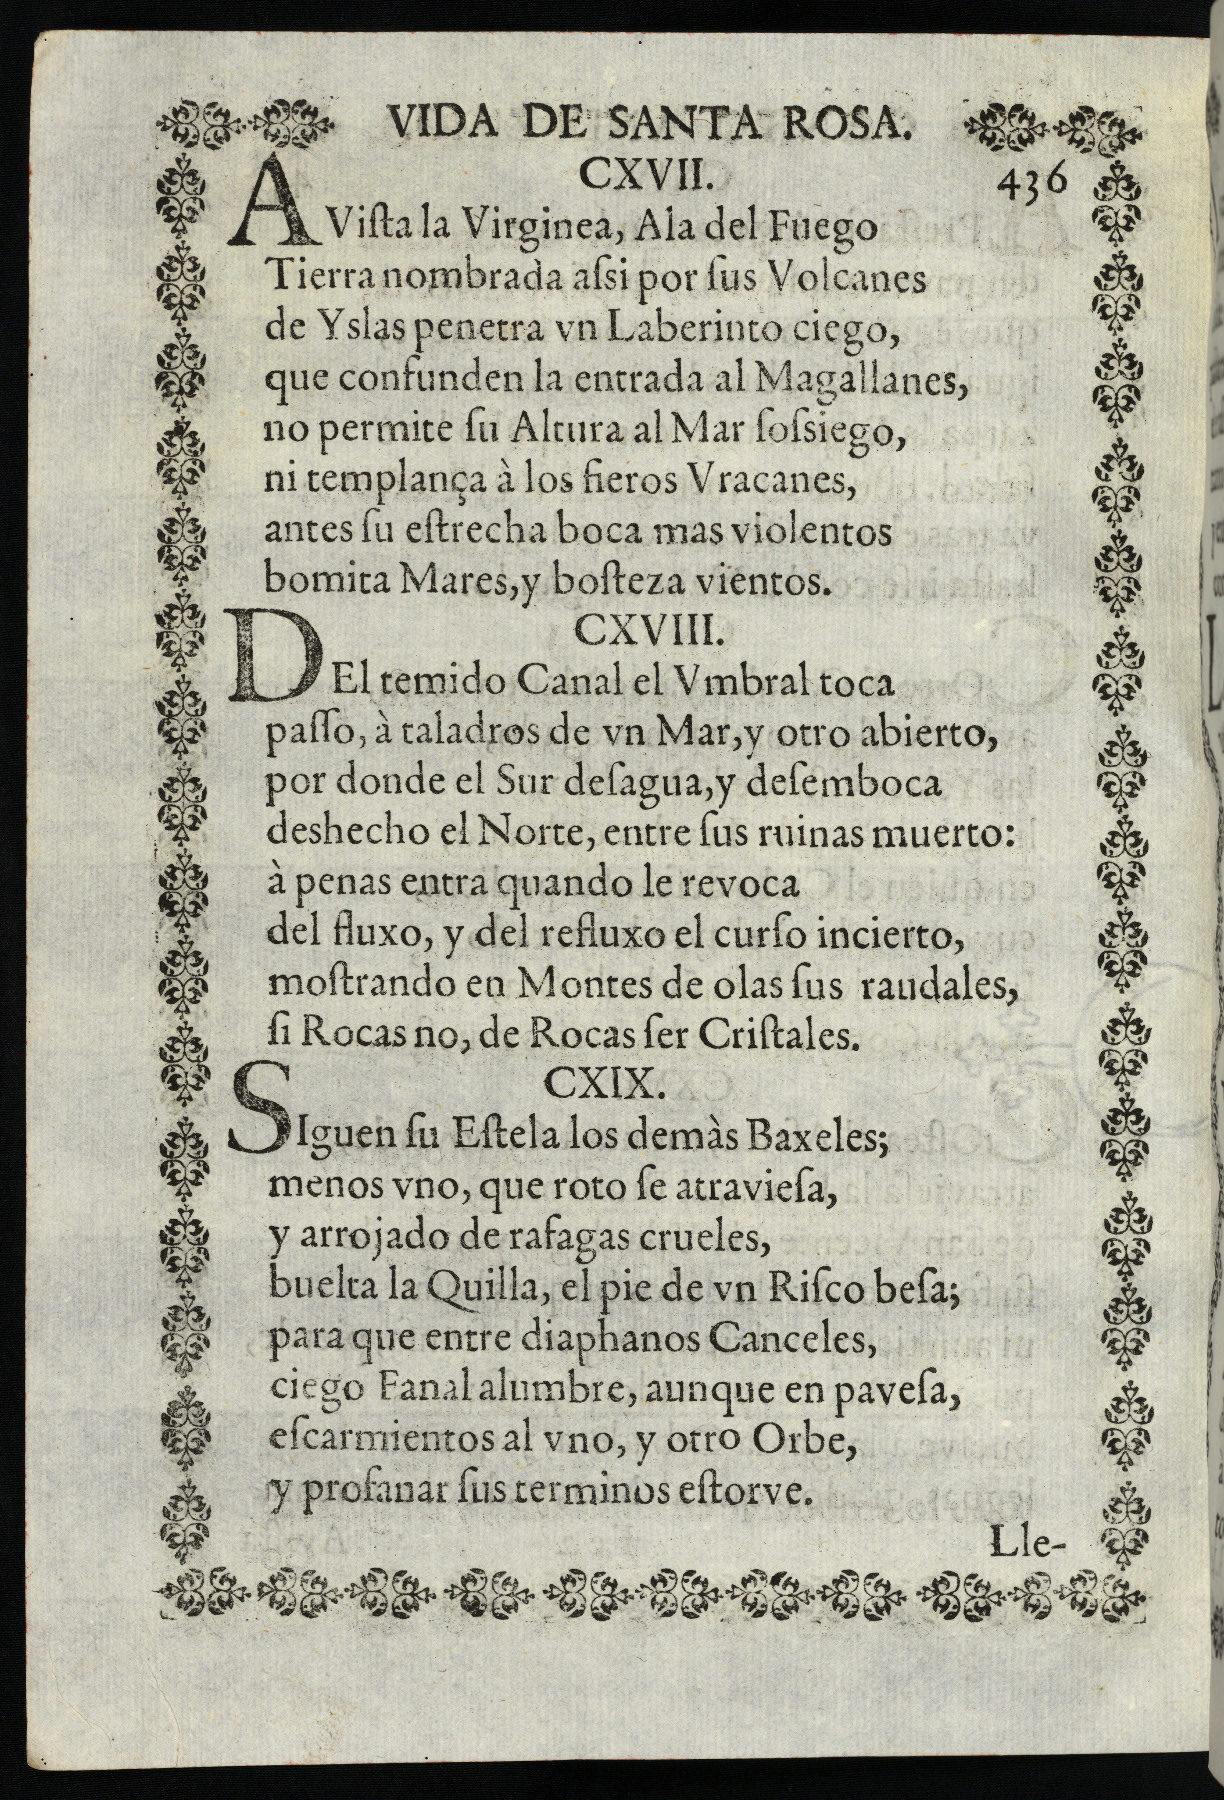 VIDA DE SANTA ROSA.
CXVII.
436
A Viſta la Virginea, Ala del Fuego
Tierra nombrada aſsi por ſus Volcanes
de Yslas penetra vn Laberinto ciego,
que confunden la entrada al Magallanes,
no permite ſu Altura al Mar ſoſsiego,
ni templança à los fieros Vracanes,
antes ſu eſtrecha boca mas violentos
bomita Mares, y boſteza vientos.
CXVIII.
DEl temido Canal el Vmbral toca
paſſo, à taladros de vn Mar, y otro abierto,
por donde el Sur deſagua, y deſemboca
deshecho el Norte, entre ſus ruinas muerto:
à penas entra quando le revoca
del fluxo, y del refluxo el curſo incierto,
moſtrando en Montes de olas ſus raudales,
ſi Rocas no, de Rocas ſer Criſtales.
CXIX.
SIguen ſu Eſtela los demàs Baxeles;
menos vno, que roto ſe atravieſa,
y arrojado de rafagas crueles,
buelta la Quilla, el pie de vn Riſco beſa;
para que entre diaphanos Canceles,
ciego Fanal alumbre, aunque en paveſa,
eſcarmientos al vno, y otro Orbe,
y profanar ſus terminos eſtorve.
Lle-